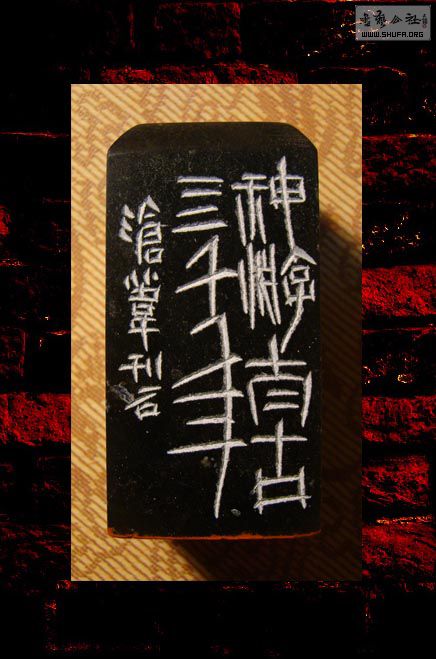 神游古
三千年
滄葦刊石
書藝公社
WWW.SHUFA.ORG